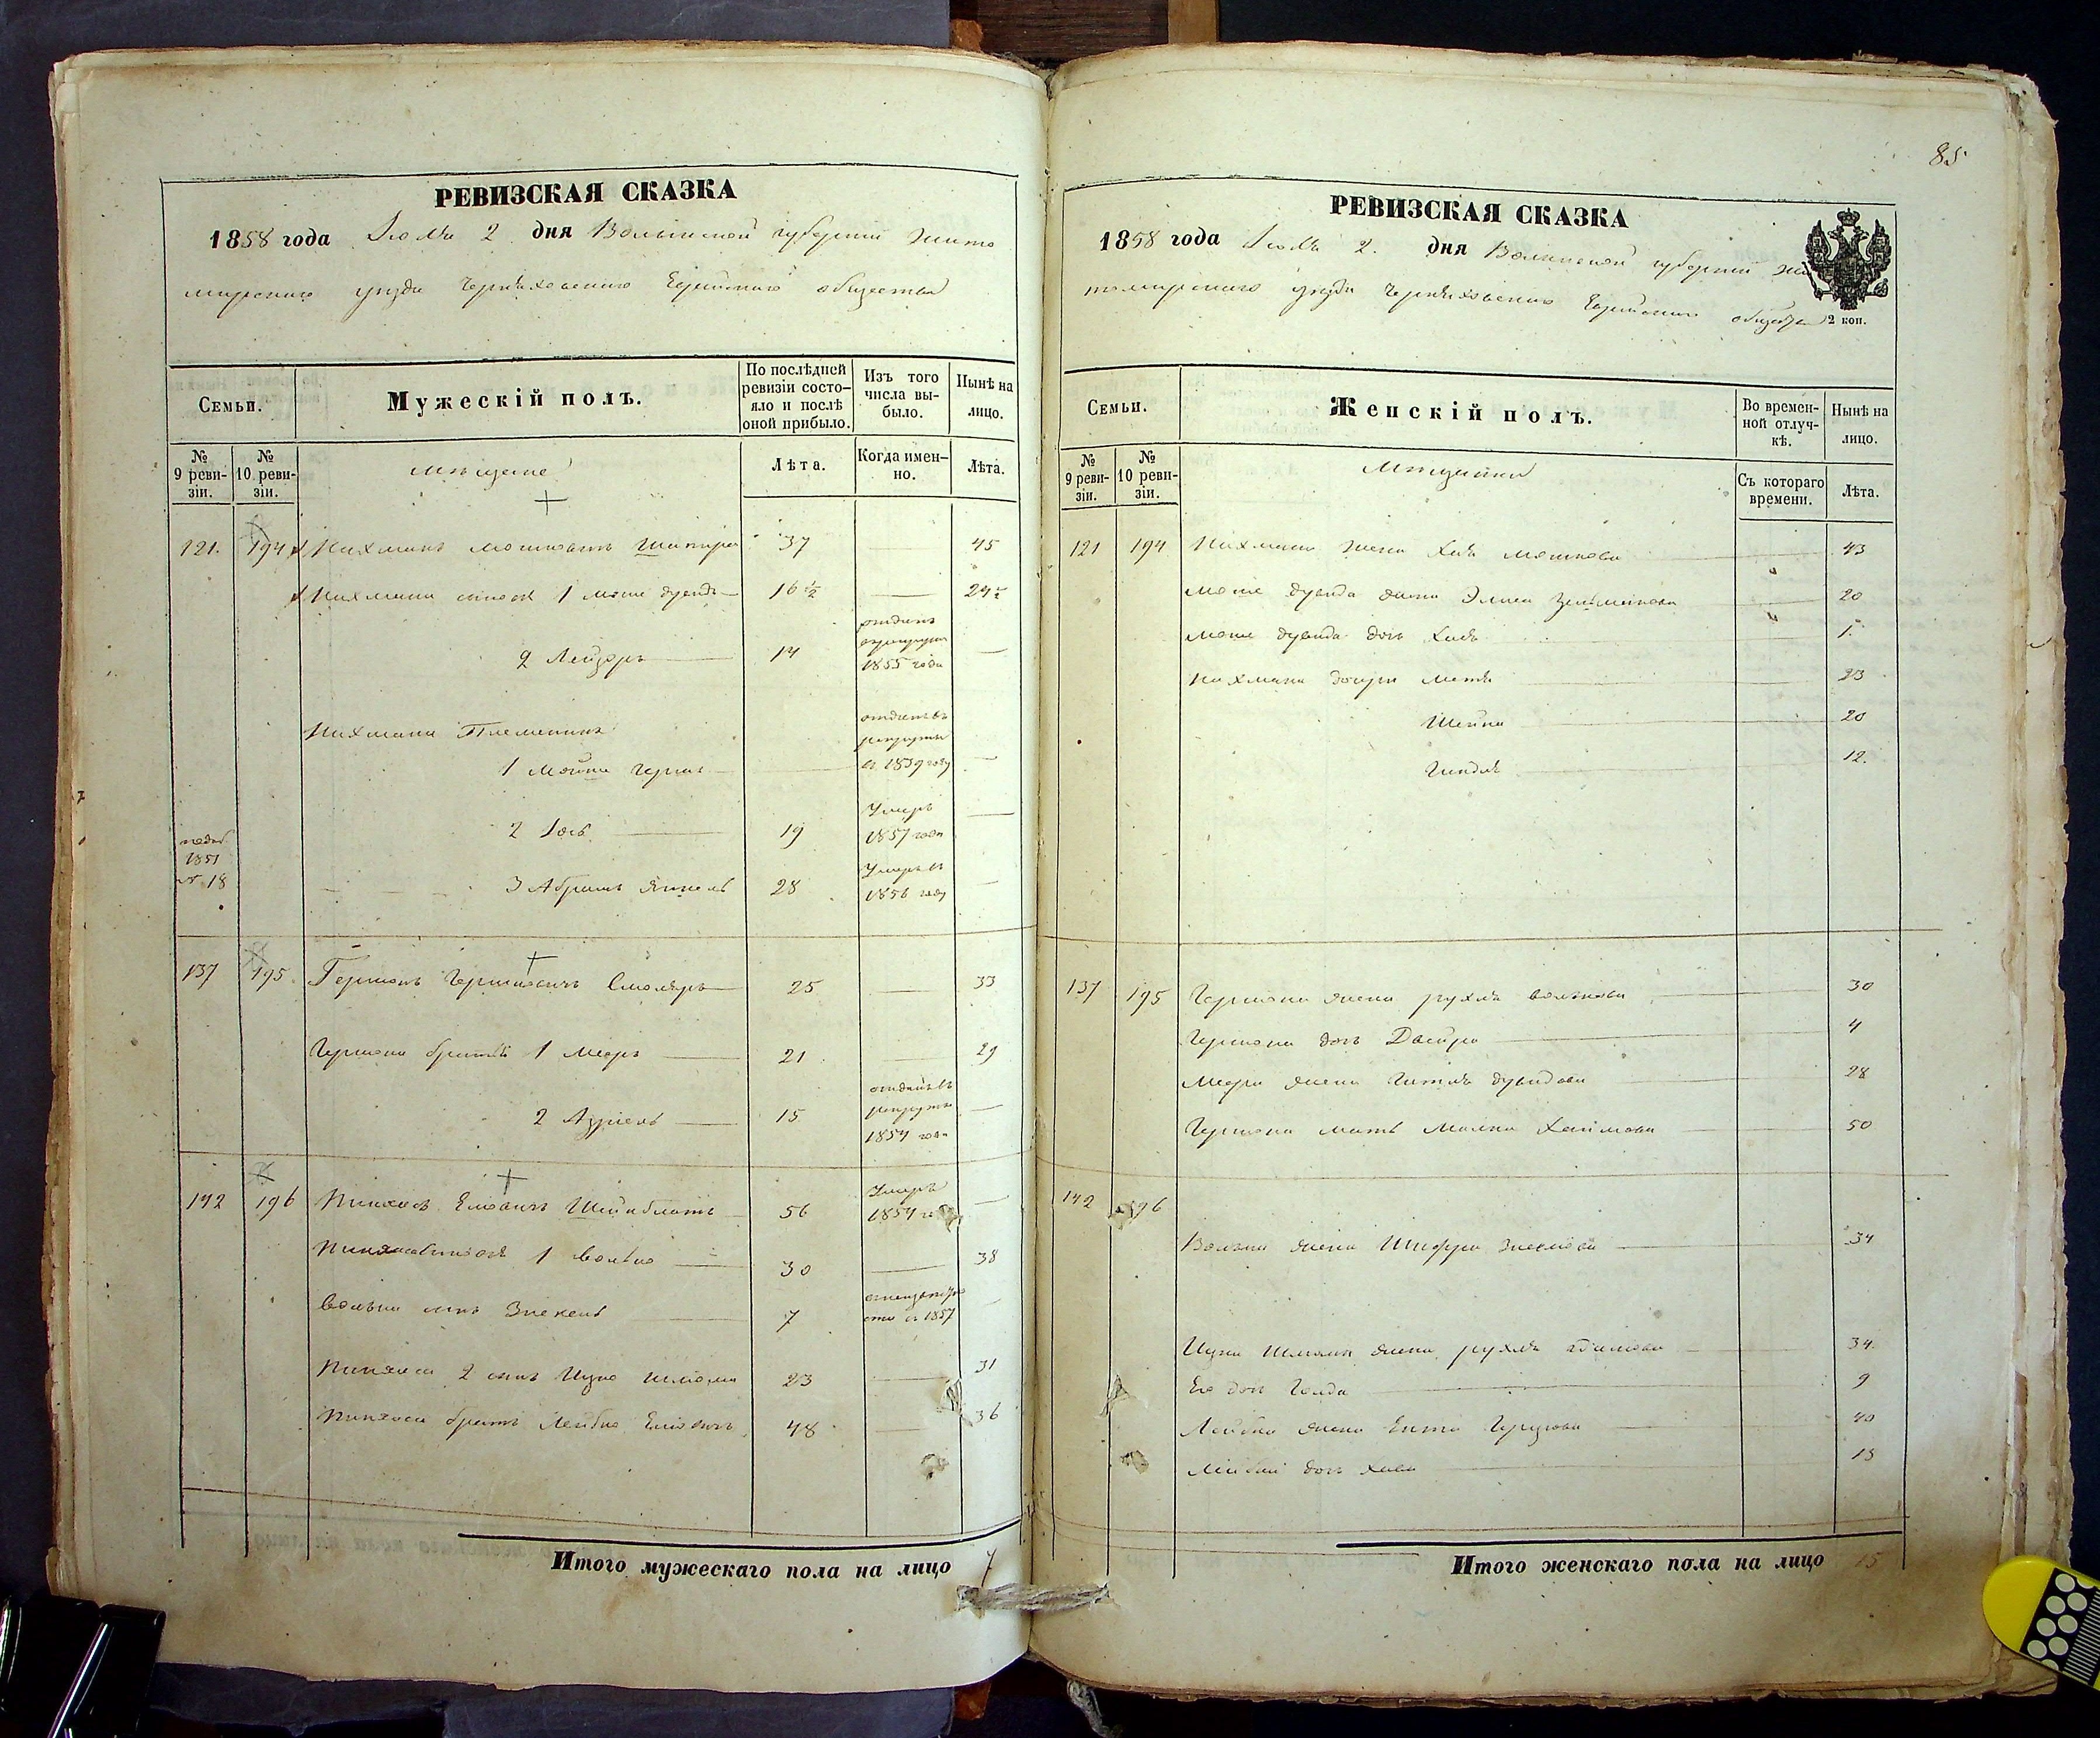 РЕВИЗСКАЯ СКАЗКА
1858 года Июля 2 дня Волынской губерніи Жито
мирскаго уѣзда Черняховскаго Еврейскаго общества
Семьи.
Мужескій полъ.
По послѣдней ревизіи состо-
яло и послѣ оной прибыло.
Изъ того числа вы-
было.
Нынѣ на лицо.
№ 9 реви-
зіи.
№ 10 реви-
зіи.
Мѣщане
Лѣта.
Когда имен-
но.
Лѣта.
121. 194 Нахманъ Мошковичъ Шапира 37 45
Нахмана сыновья 1 Мошe Дувидъ 16½ 24½
2 Лейзоръ 14 отданъ 1855 года
Нахмана Племянники
1 Мойше Герш отданъ въ рекруты въ 1839 году
2 Іось 19 Умеръ 1857 года
1851 № 18
3 Абрамъ Янкель 28 Умеръ въ 1856 году
137 195 Гершонъ Гершковичъ Смоляръ 25 33
Гершона братья 1 Меоръ 21 29
2 Азріель 15 отданъ въ рекруты 1854 года
142 196 Пинхасъ Еліовичъ Шейнблатъ 56 Умеръ 1854
Пинхаса сыновья 1 Волько 30 38
Волька сынъ Знехель 7 1857
Пинхаса 2 сынъ Ицко Шлома 23 31
Пинхаса братъ Лейбко Еліовичъ 48 36
Итого мужескаго пола на лицо 7
85
РЕВИЗСКАЯ СКАЗКА
1858 года Июля 2. дня Волынской губерніи Жи
томирскаго уѣзда Черняховскаго Еврейскаго общества
2 коп.
Семьи.
Женскій полъ.
Во времен-
ной отлуч-
кѣ.
Нынѣ на лицо.
№ 9 реви-
зіи.
№ 10 реви-
зіи.
Мѣщанки
Съ котораго времени.
Лѣта.
121 194 Нахмана жена Хая Мошкова 43
Моше Дувида жена Элька Зельманова 20
Моше Дувида дочь Хая 1.
Нахмана дочери Матя 23
Шейна 20
Гиндля 12.
137 195 Гершона жена Рухля Волькова 30
Гершона дочь Двейра 4
Меора жена Гитля Дувидова 28
Гершона мать Малка Хаимова 50
142 196
Волька жена Шифра 34
Ицка Шлiома жена Рухля 34
Его дочь Голда 9
Лейбка жена Ента 40
Лейбки дочь Хава 15
Итого женскаго пола на лицо 15